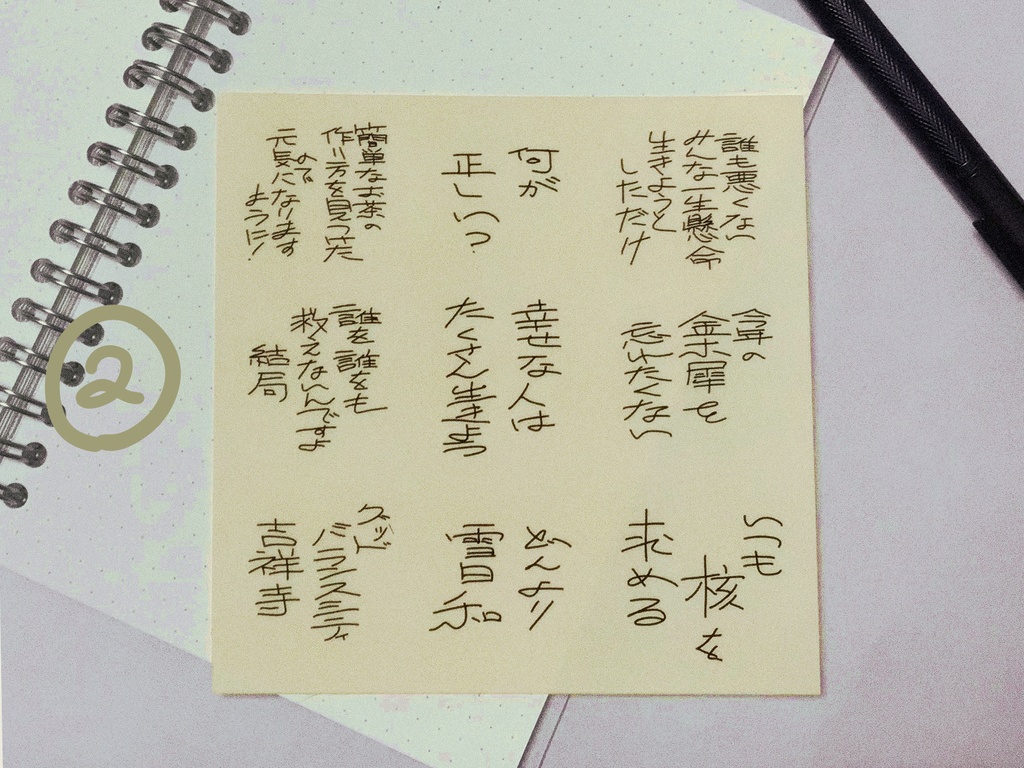 誰も悪くない
みんな一生懸命
生きようと
しただけ
何が
正しい?
簡単なお茶の
作り方を見つた
ので
元気になります
ように!
今年の
金木犀を
忘れたくない
幸せな人は
たくさん生きよう
誰を誰をも
救えないんですよ
結局
いつも
核を
求める
どんより
雪日和
グッド
バランスシティ
吉祥寺
②